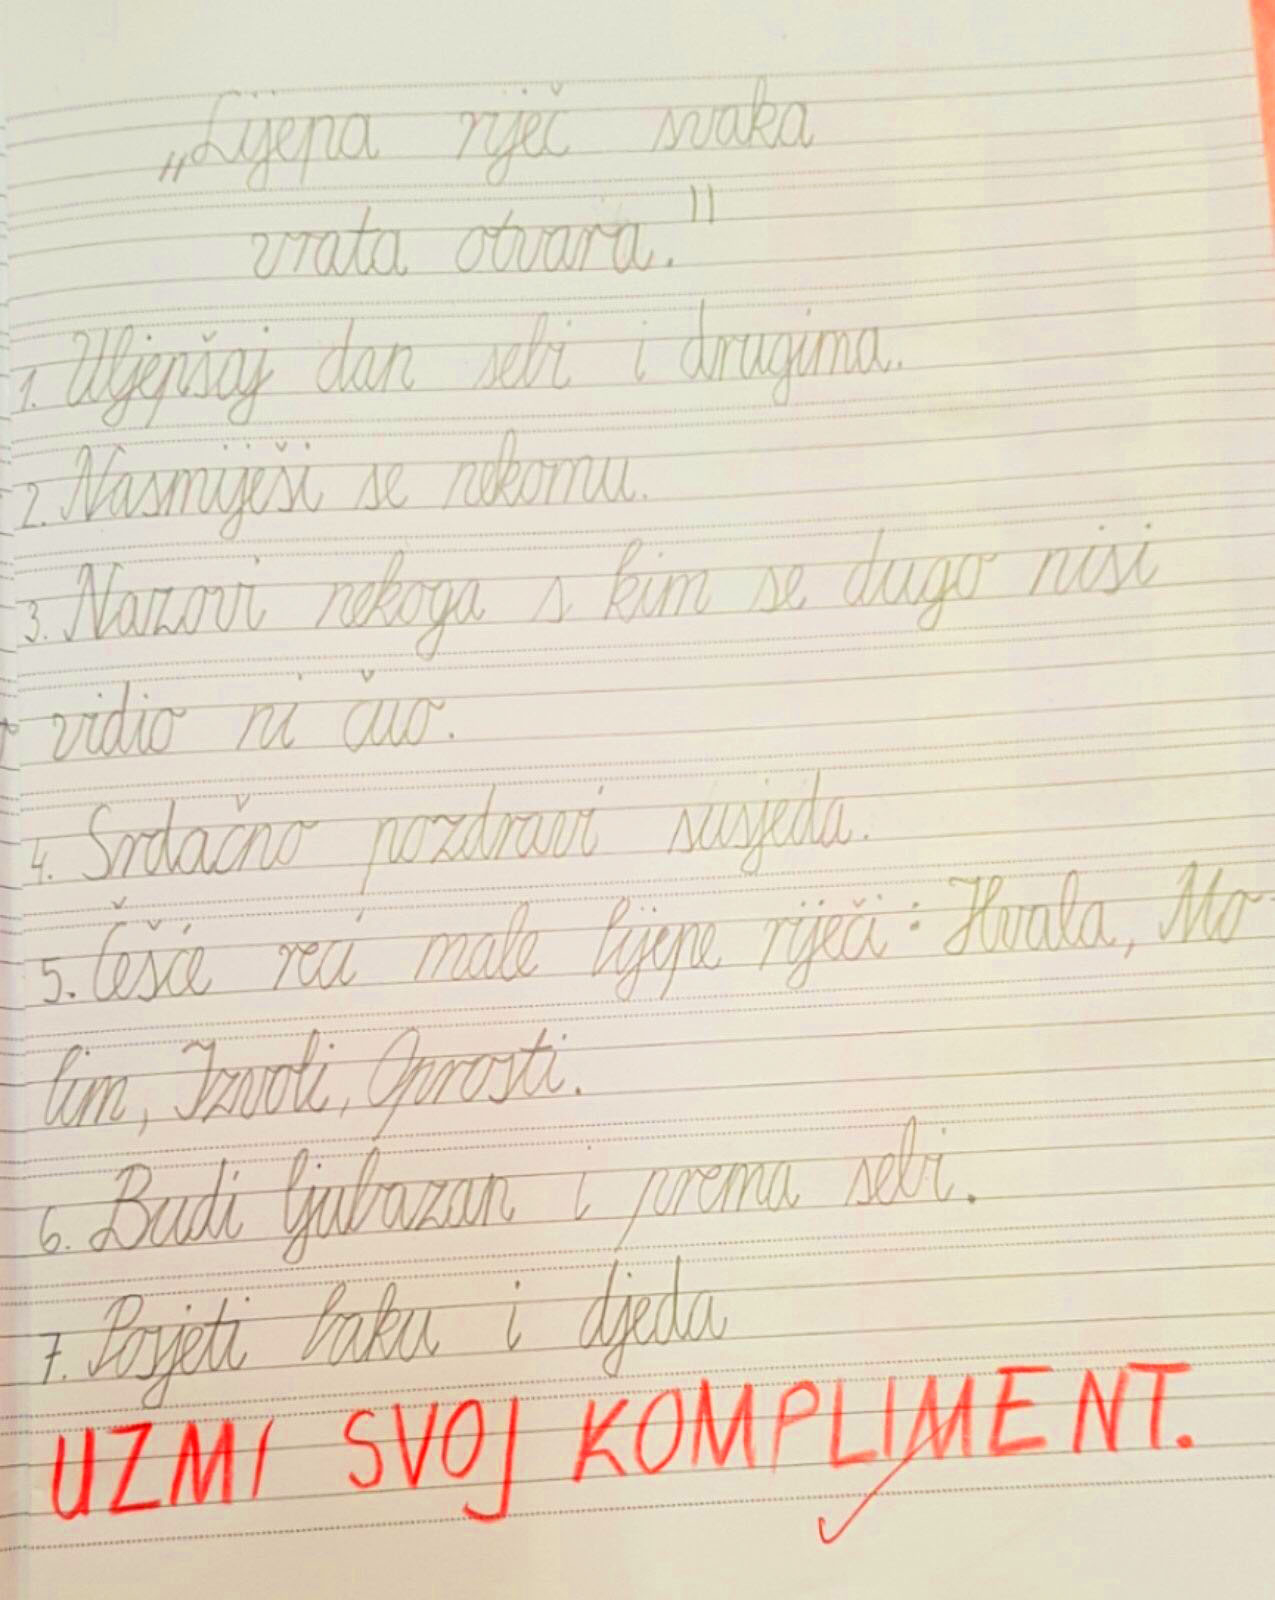 „Lijepa riječ svaka
vrata otvara."
1. Uljepšaj dan sebi i drugima.
2. Nasmiješi se nekomu.
3. Nazovi nekoga s kim se dugo nisi
vidio ni čuo.
4. Srdačno pozdravi susjeda.
5. Češće reci male lijepe riječi: Hvala, Mo-
lim, Izvoli, Oprosti.
6. Budi ljubazan i prema sebi.
7. Posjeti baku i djeda
UZMI SVOJ KOMPLIMENT.